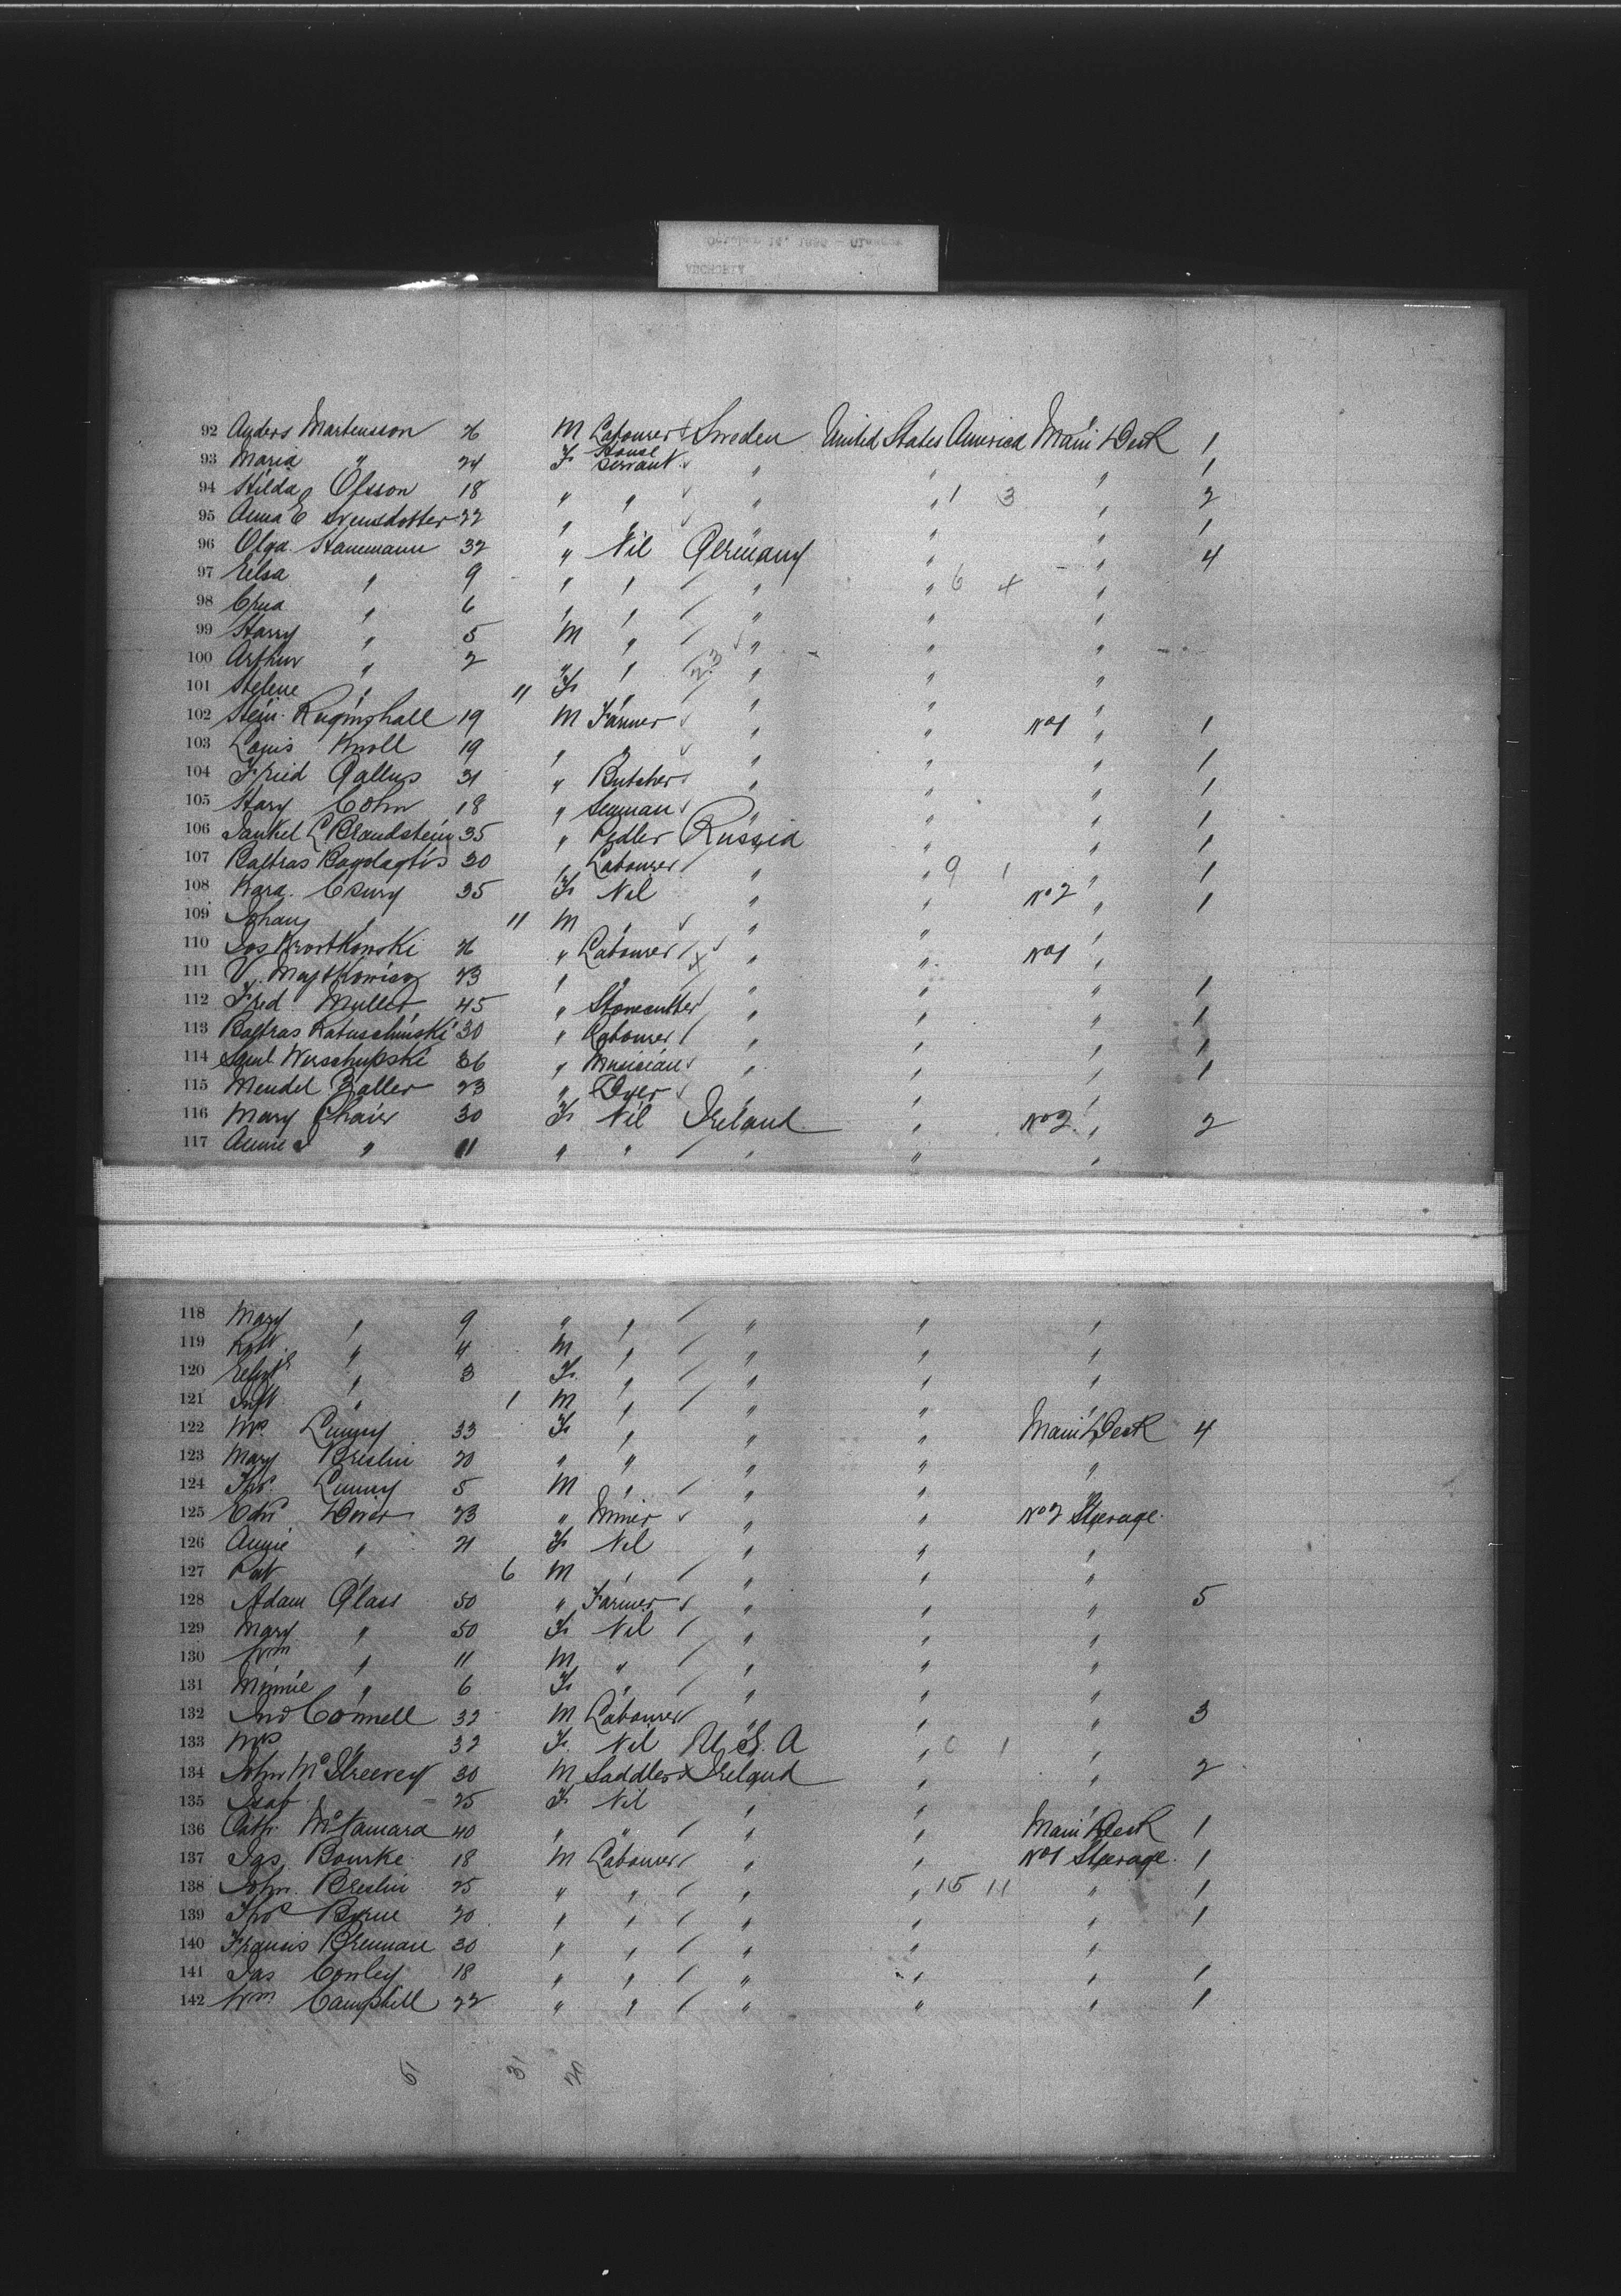 October 14, 1886 - Glasgow
ANCHORIA
92 Anders Martensson 26 M Labourer Sweden United States America Main Deck 1
93 Maria " 24 F House Servant " " " 1
94 Hilda Olsson 18 " " " " 1 3 " 2
95 Anna E Svensdotter 22 " " " " " 1
96 Olga Hanemann 32 " Nil Germany " " 4
97 Elsa " 9 " " " " 6 4 "
98 " 6 " " " " "
99 Harry " 5 M " " " "
100 Arthur " 2 " " " " "
101 Helene " 11 F " " " "
102 Hein 19 M Farmer " " No 1 " 1
103 Louis Knoll 19 " " " " " 1
104 Fried Gallus 31 " Butcher " " " 1
105 Hary Cohn 18 " Seaman " " " 1
106 Jankel L Brandstein 35 " Pedler Russia " " 1
107 Baltras 30 " Labourer " " 9 1 " 1
108 Kara 35 F Nil " " No 2 " 1
109 Johan " 11 M " " " "
110 Jos 26 " Labourer " " No 1 "
111 V. 23 " " " " " 1
112 Fred Muller 45 " Stonecutter " " " 1
113 Baltras Katuschinski 30 " Labourer " " " 1
114 Saml 36 " Musician " " " 1
115 Mendel Zaller 23 " Dyer " " "
116 Mary Chair 30 F Nil Ireland " No 2 " 2
117 Annie J " 11 " " " " "
118 Mary " 9 " " " " "
119 Robt " 4 M " " " "
120 Elizth " 3 F " " " "
121 Inft " 1 M " " " "
122 Mrs Lunny 33 F " " " Main Deck 4
123 Mary Breslin 20 " " " " "
124 Thos Lunny 5 M " " " "
125 Edwd 23 " Miner " " No 2 Steerage
126 Annie " 21 F Nil " " "
127 Pat " 6 M " " " "
128 Adam Glass 50 " Farmer " " " 5
129 Mary " 50 F Nil " " "
130 Wm " 11 M " " " "
131 Minnie " 6 F " " " "
132 Jno Connell 32 M Labourer " " " 3
133 Mrs " 32 F Nil U.S.A " 0 1 "
134 John McIlreevey 30 M Saddler Ireland " " 2
135 Isab " 25 F Nil " " "
136 Cath McNamara 40 " " " " Main Deck 1
137 Jas Bourke 18 M Labourer " " No 1 Steerage 1
138 John Breslin 25 " " " " 15 11 " 1
139 Thos Byrne 20 " " " " " 1
140 Francis Brennan 30 " " " " "
141 Jas Conley 18 " " " " " 1
142 Wm Campbell 22 " " " " " 1